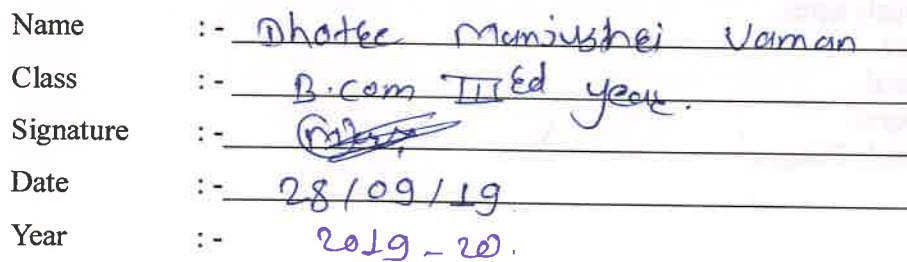 Name :- Dhatee Manjushri Vaman
Class :- B.com IIIEd year.
Signature :-
Date :- 28/09/19
Year :- 2019-20.